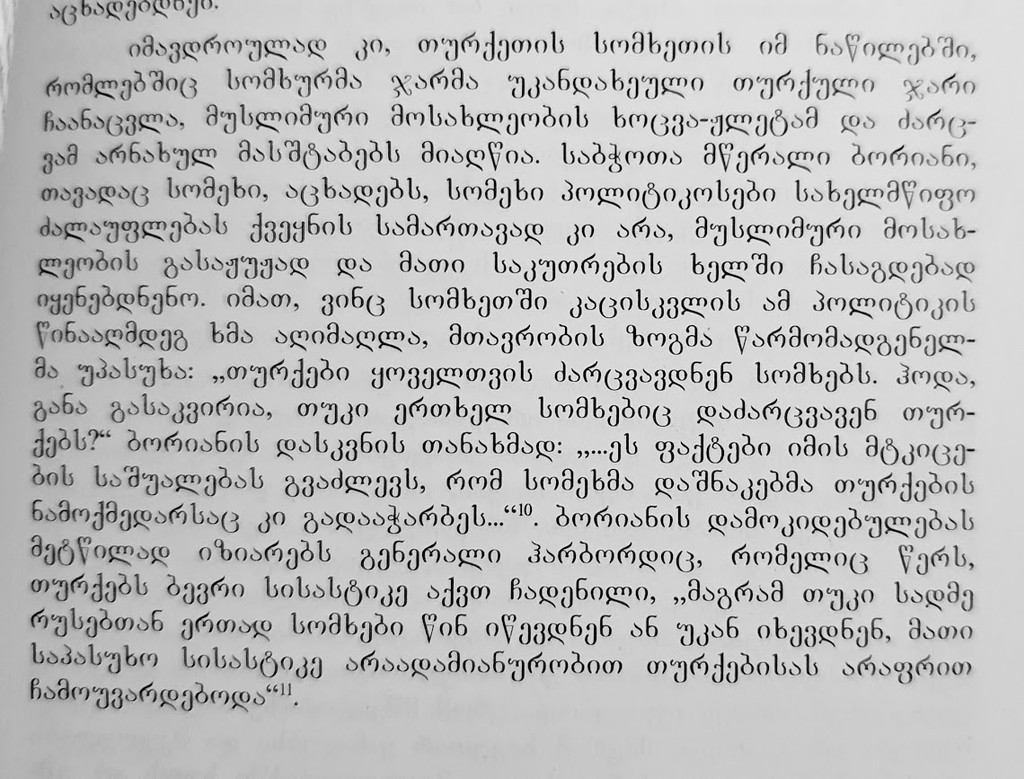 აცხადებდნენ.
იმავდროულად კი, თურქეთის სომხეთის იმ ნაწილებში,
რომლებშიც სომხურმა ჯარმა უკანდახეული თურქული ჯარი
ჩაანაცვლა, მუსლიმური მოსახლეობის ხოცვა-ჟლეტამ და ძარც-
ვამ არნახულ მასშტაბებს მიაღწია. საბჭოთა მწერალი ბორიანი,
თავადაც სომეხი, აცხადებს, სომეხი პოლიტიკოსები სახელმწიფო
ძალაუფლებას ქვეყნის სამართავად კი არა, მუსლიმური მოსახ-
ლეობის გასაჟუჟად და მათი საკუთრების ხელში ჩასაგდებად
იყენებდნენო. იმათ, ვინც სომხეთში კაცისკვლის ამ პოლიტიკის
წინააღმდეგ ხმა აღიმაღლა, მთავრობის ზოგმა წარმომადგენელ-
მა უპასუხა: „თურქები ყოველთვის ძარცვავდნენ სომხებს. ჰოდა,
განა გასაკვირია, თუკი ერთხელ სომხებიც დაძარცვავენ თურ-
ქებს?“ ბორიანის დასკვნის თანახმად: „...ეს ფაქტები იმის მტკიცე-
ბის საშუალებას გვაძლევს, რომ სომეხმა დაშნაკებმა თურქების
ნამოქმედარსაც კი გადააჭარბეს...“¹⁰. ბორიანის დამოკიდებულებას
მეტწილად იზიარებს გენერალი ჰარბორდიც, რომელიც წერს,
თურქებს ბევრი სისასტიკე აქვთ ჩადენილი, „მაგრამ თუკი სადმე
რუსებთან ერთად სომხები წინ იწევდნენ ან უკან იხევდნენ, მათი
საპასუხო სისასტიკე არაადამიანურობით თურქებისას არაფრით
ჩამოუვარდებოდა“¹¹.